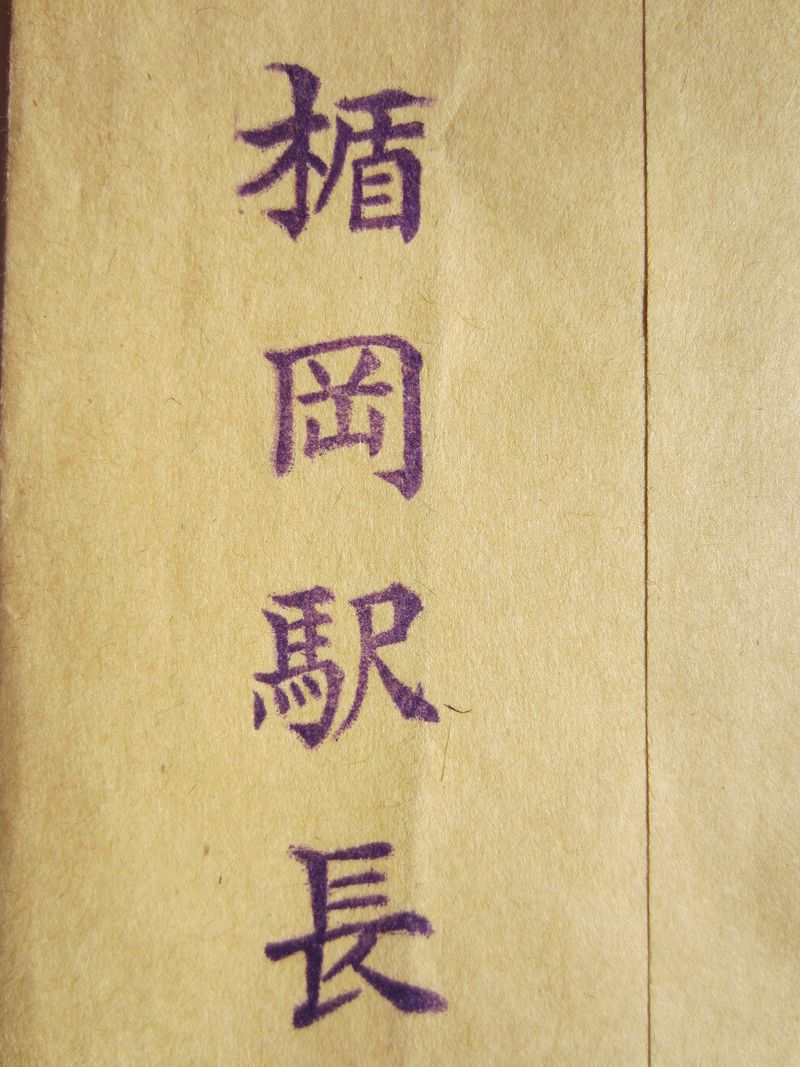 楯岡駅長